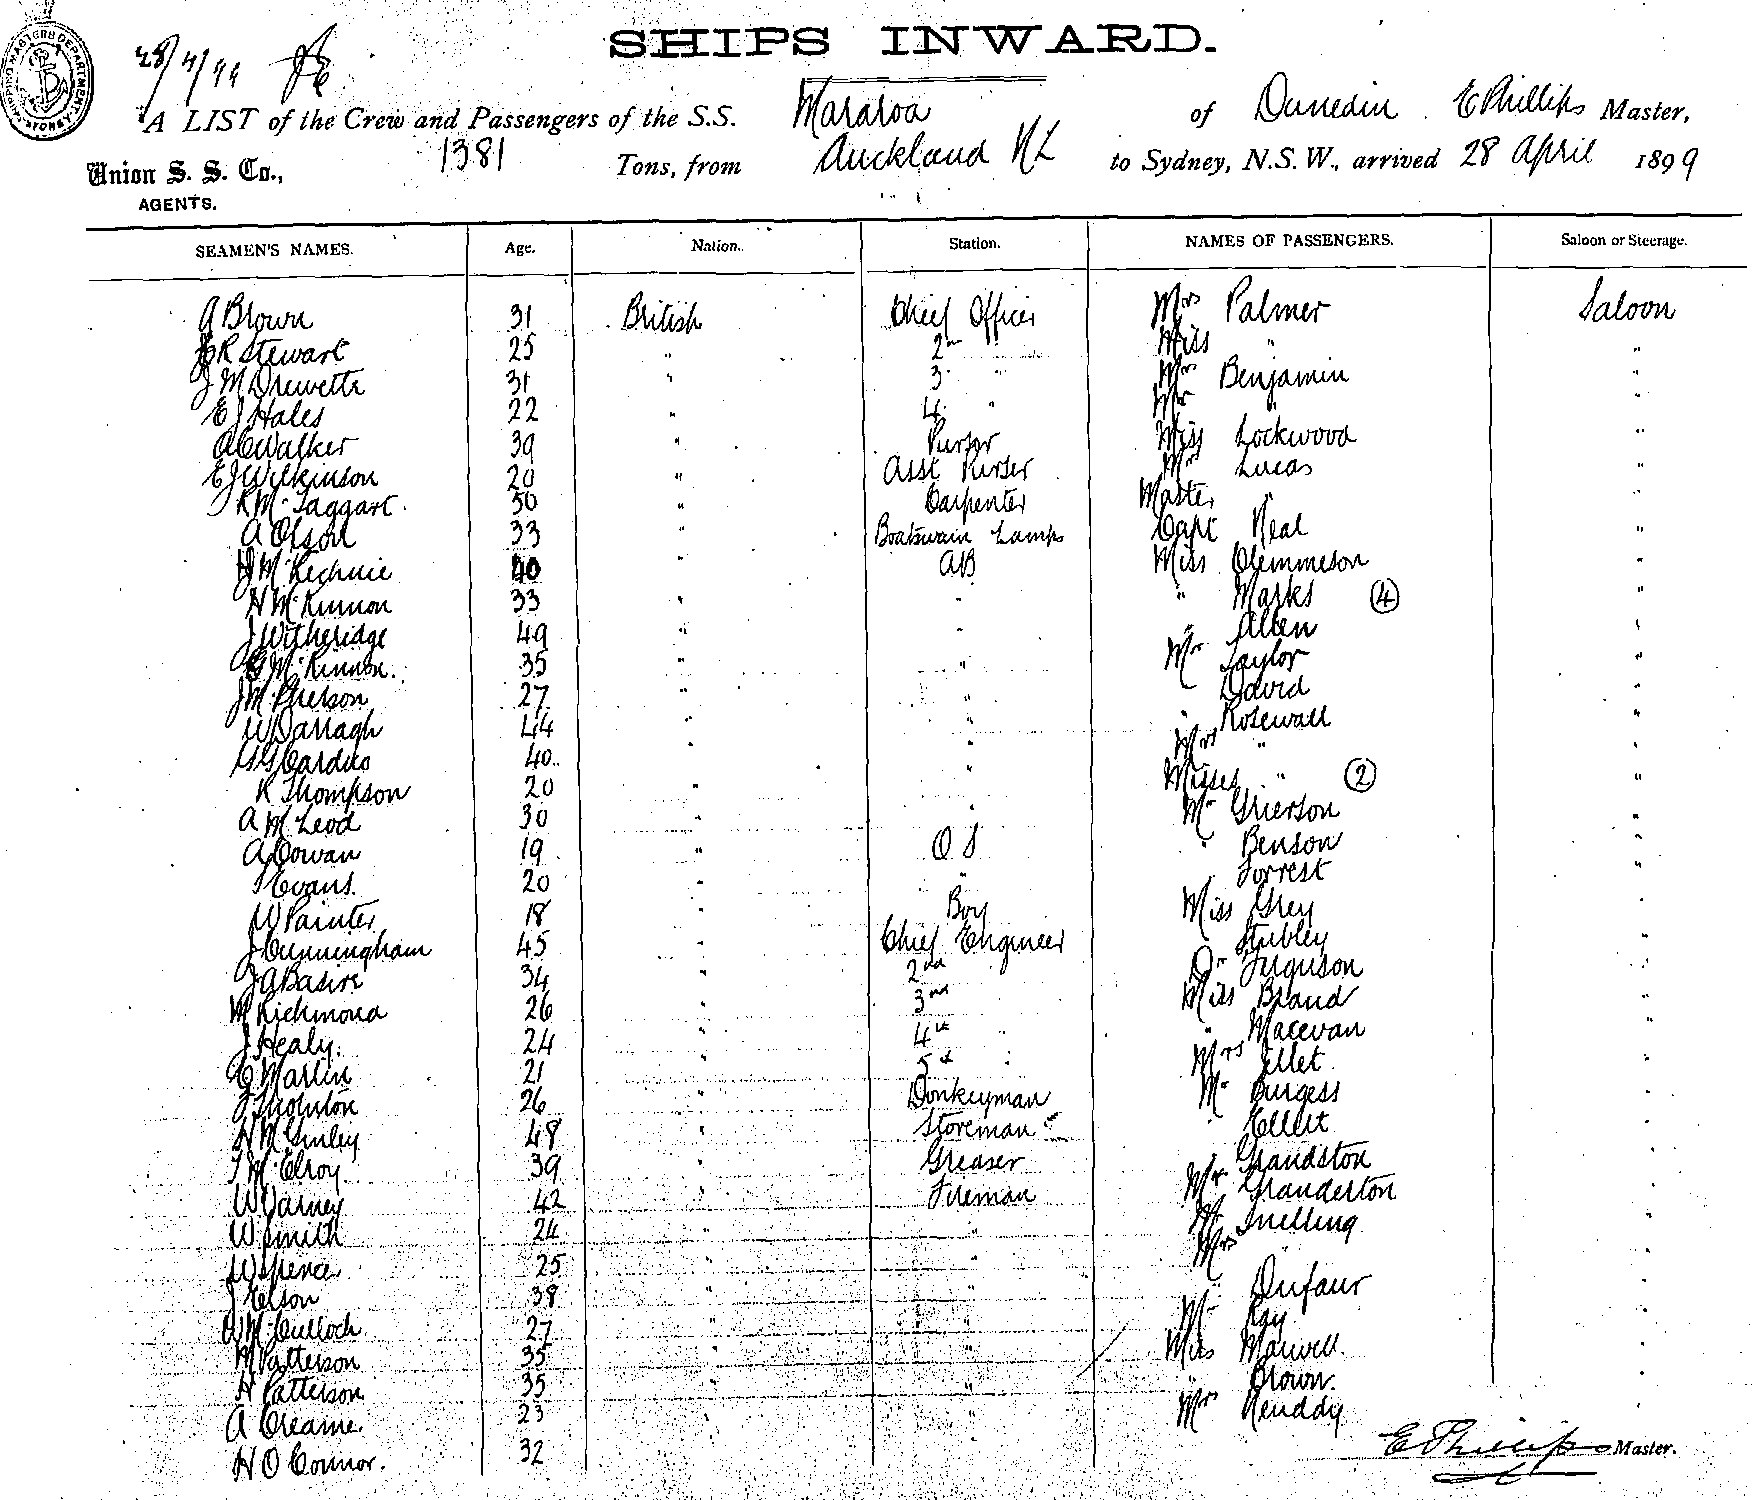 SHIPS INWARD.
28/4/99
A LIST of the Crew and Passengers of the S.S. Mararoa of Dunedin E Phillips Master,
Union S. S. Co., 1381 Tons, from Auckland NZ to Sydney, N.S.W., arrived 28 April 1899
AGENTS.
SEAMEN'S NAMES. Age. Nation. Station. NAMES OF PASSENGERS. Saloon or Steerage.
A Brown 31 British Chief Officer Mrs Palmer Saloon
R Stewart 25 " 2nd Miss " "
J M Drewette 31 " 3 " Mrs Benjamin "
E J Hales 22 " 4 " Mr " "
A C Walker 39 " Purser Miss Lockwood "
E J Wilkinson 20 " Asst Purser Mrs Lucas "
R McTaggart 50 " Carpenter Master " "
A Olson 33 " Boatswain Lamps Capt Neal "
McKechnie 40 " AB Miss Clemmeson "
H McKinnon 33 " " " Marks (4) "
J Witheridge 49 " " " Allen "
McKinnon 35 " " Mr Taylor "
J McPherson 27 " " David "
W Darragh 44 " " " Rosewall "
40 " " Mrs " "
R Thompson 20 " " Misses " (2) "
A McLeod 30 " " Mr Grierson "
A Cowan 19 " O S " Benson "
Evans 20 " " Forrest "
W Painter 18 " Boy Miss Grey "
J Cunningham 45 " Chief Engineer Stubley "
J A Basire 34 " 2nd Dr Ferguson "
M Richmond 26 " 3rd Miss Brand "
J Healy 24 " 4th " " Macevan "
E Martin 21 " 5th Mrs Ellet "
J Thornton 26 " Donkeyman Mr Burgess "
H McGinley 48 " Storeman Ellett "
T McElroy 39 " Greaser Grandston "
W Varney 42 " Fireman Mr Granderton "
W Smith 24 " " Mr Snelling "
W Spence 25 " " Mrs "
J Elson 38 " " " Dufaur "
McCulloch 27 " " Mr Kay "
M Patterson 35 " " Miss Maxwell "
H Patterson 35 " " " Brown "
A Creame 23 " Mrs "
H O Connor. 32
E Phillips Master.